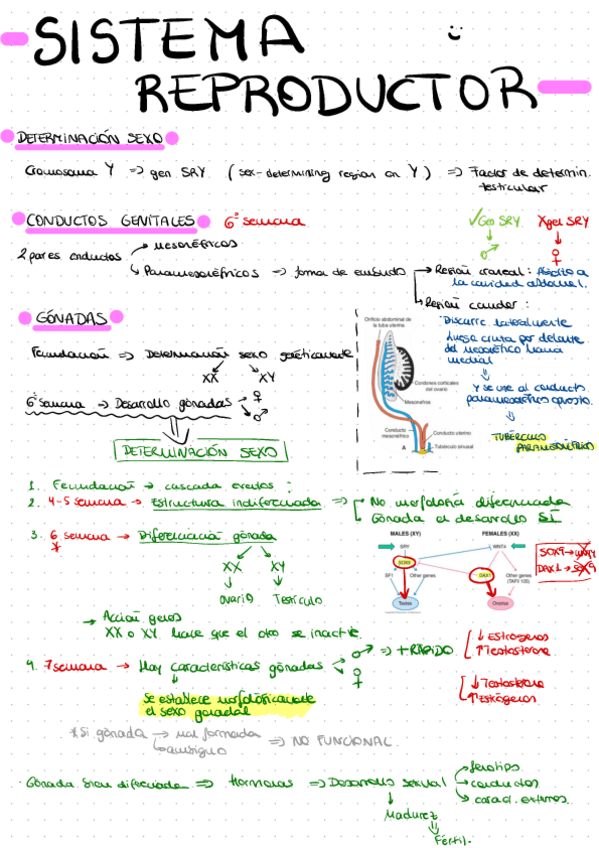 SISTEMA
REPRODUCTOR
DETERMINACIÓN SEXO
Cromosoma Y => gen SRY (sex-determining region on Y) => Factor de determin.
testicular
CONDUCTOS GENITALES 6ª semana
✓Gen SRY
♂
X gen SRY
♀
2 pares conductos
→ Mesonéfricos
→ Paramesonéfricos => forma de embudo
→ Región craneal: Abierto a
la cavidad abdominal.
→ Región caudal:
Discurre lateralmente
luego cruza por delante
del mesonéfrico hacia
medial
Y se une al conducto
paramesonéfrico opuesto.
TUBÉRCULO
PARAMESONÉFRICO
Orificio abdominal de
la tuba uterina
Cordones corticales
del ovario
Mesonefros
Conducto
mesonéfrico
Conducto uterino
Tubérculo sinusal
A
GÓNADAS
Fecundación => Determinación sexo genéticamente
XX XY
6ª semana => Desarrollo gónadas → ♀
→ ♂
DETERMINACIÓN SEXO
1. Fecundación → cascada eventos:
2. 4-5 semana → Estructura indiferenciada => No morfología diferenciada
Gónada el desarrollo SÍ
3. 6 semana → Diferenciación gónada
*
XX XY
Ovario Testículo
→ Acción genes
XX o XY hace que el otro se inactive.
MALES (XY)
SRY
SOX9
SF1
Other genes
Testes
FEMALES (XX)
WNT4
DAX1
Other genes
(TAFII 105)
Ovaries
SOX9 → WNT4
DAX1 → SOX9
4. 7 semana → Hay características gónadas → ♂ => + RÁPIDO
→ ♀
↓ Estrógenos
↑ Testosterona
↓ Testosterona
↑ Estrógenos
Se establece morfológicamente
el sexo gonadal
* Si gónada → mal formada
→ ambiguo
=> NO FUNCIONAL.
· Gónada bien diferenciada => Hormonas => Desarrollo sexual
→ fenotipo
→ conductos
→ caract. externos.
Madurez
Fértil.